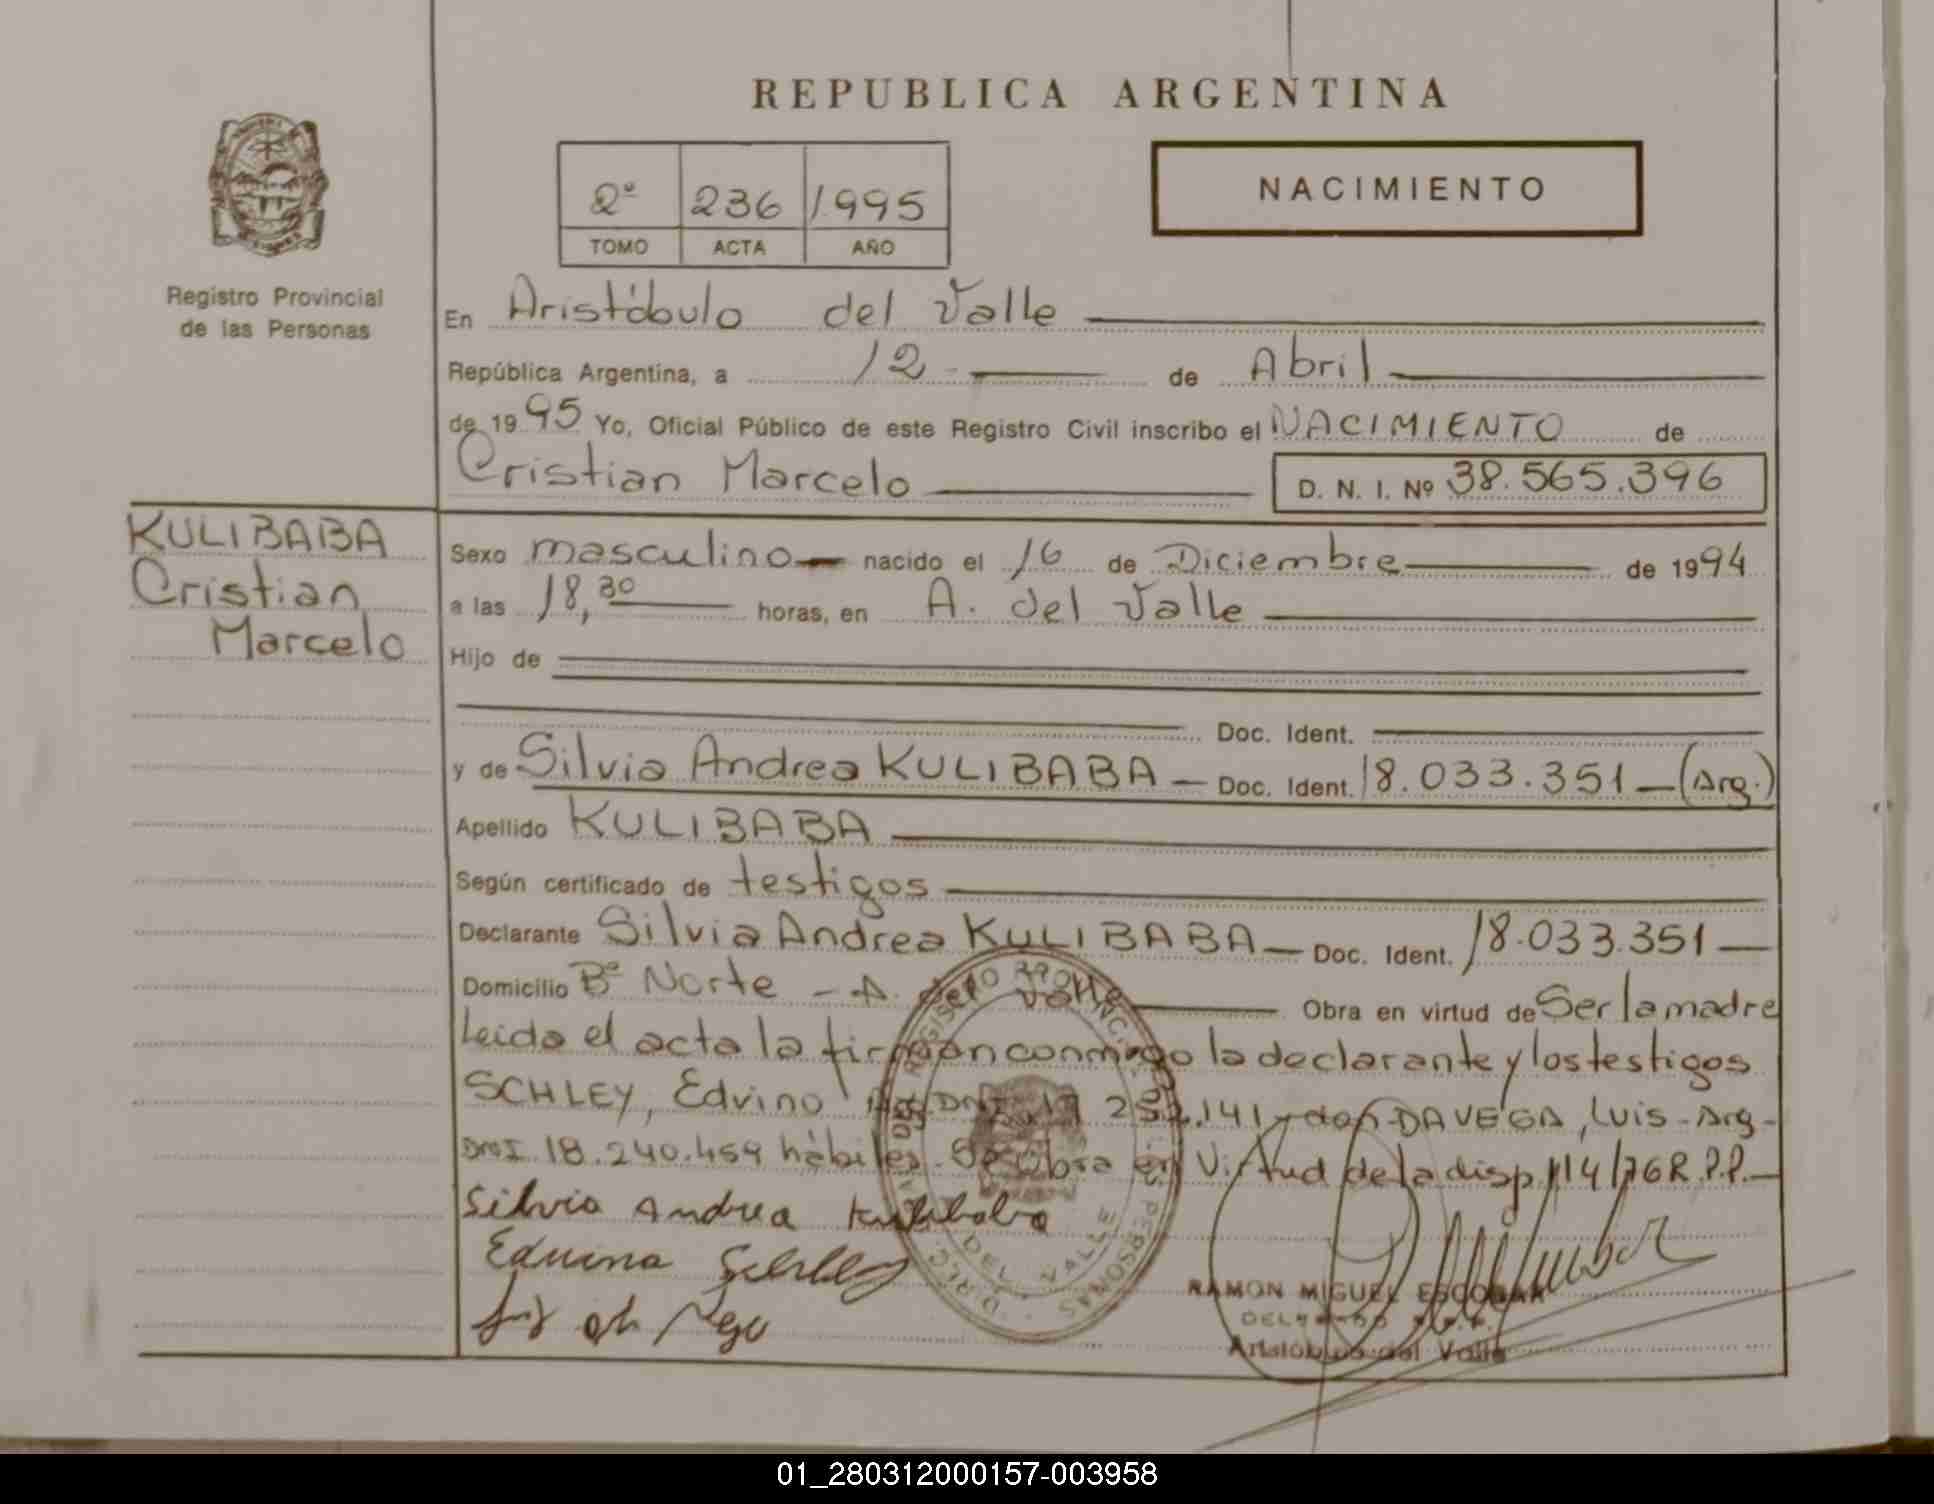 REPUBLICA ARGENTINA
2º 236 1995
TOMO ACTA AÑO
NACIMIENTO
Registro Provincial
de las Personas
En Aristóbulo del Valle
República Argentina, a 12 de Abril
de 1995 Yo, Oficial Público de este Registro Civil inscribo el NACIMIENTO de
Cristian Marcelo D. N. I. Nº 38.565.396
KULIBABA
Cristian
Marcelo
Sexo masculino nacido el 16 de Diciembre de 1994
a las 18,30 horas, en A. del Valle
Hijo de
Doc. Ident.
y de Silvia Andrea KULIBABA Doc. Ident. 18.033.351 (Arg.)
Apellido KULIBABA
Según certificado de testigos
Declarante Silvia Andrea KULIBABA Doc. Ident. 18.033.351
Domicilio Bº Norte - A. del Valle Obra en virtud de Ser la madre
Leida el acta la firman conmigo la declarante y los testigos
SCHLEY, Edvino Arg. DNI 17 252.141 y don DAVEGA, Luis - Arg -
DNI 18.240.459 hábiles. Se obra en Virtud de la disp 114/76 R.P.P.
Silvia Andrea Kulibaba
RAMON MIGUEL ESCOBAR
Aristóbulo del Valle
DEL VALLE
01_280312000157-003958